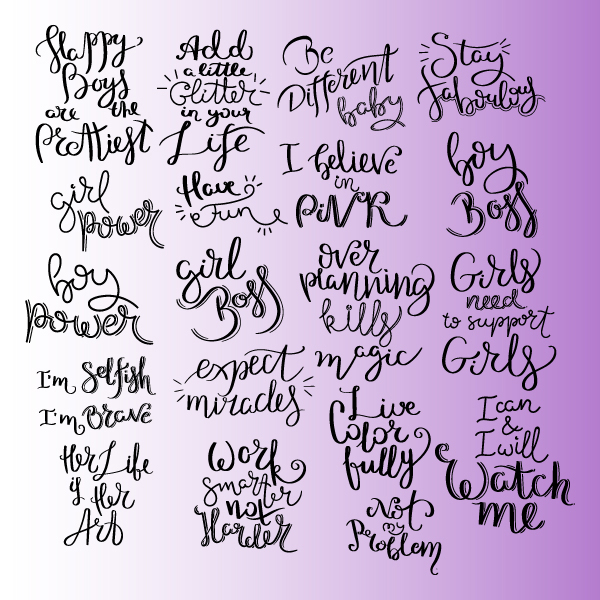 Happy
Boys
are the
Prettiest
Add
a little
Glitter
in your
Life
Be
Different
baby
Stay
faboulous
girl
power
Have
Fun
I believe
in
PiNK
boy
Boss
boy
power
girl
Boss
over
planning
kills
magic
Girls
need
to support
Girls
I'm Selfish
I'm Brave
expect
miracles
Live
Color
fully
I can
&
I will
Watch
me
Her Life
is Her
Art
Work
smarter
not
Harder
Not
my
Problem